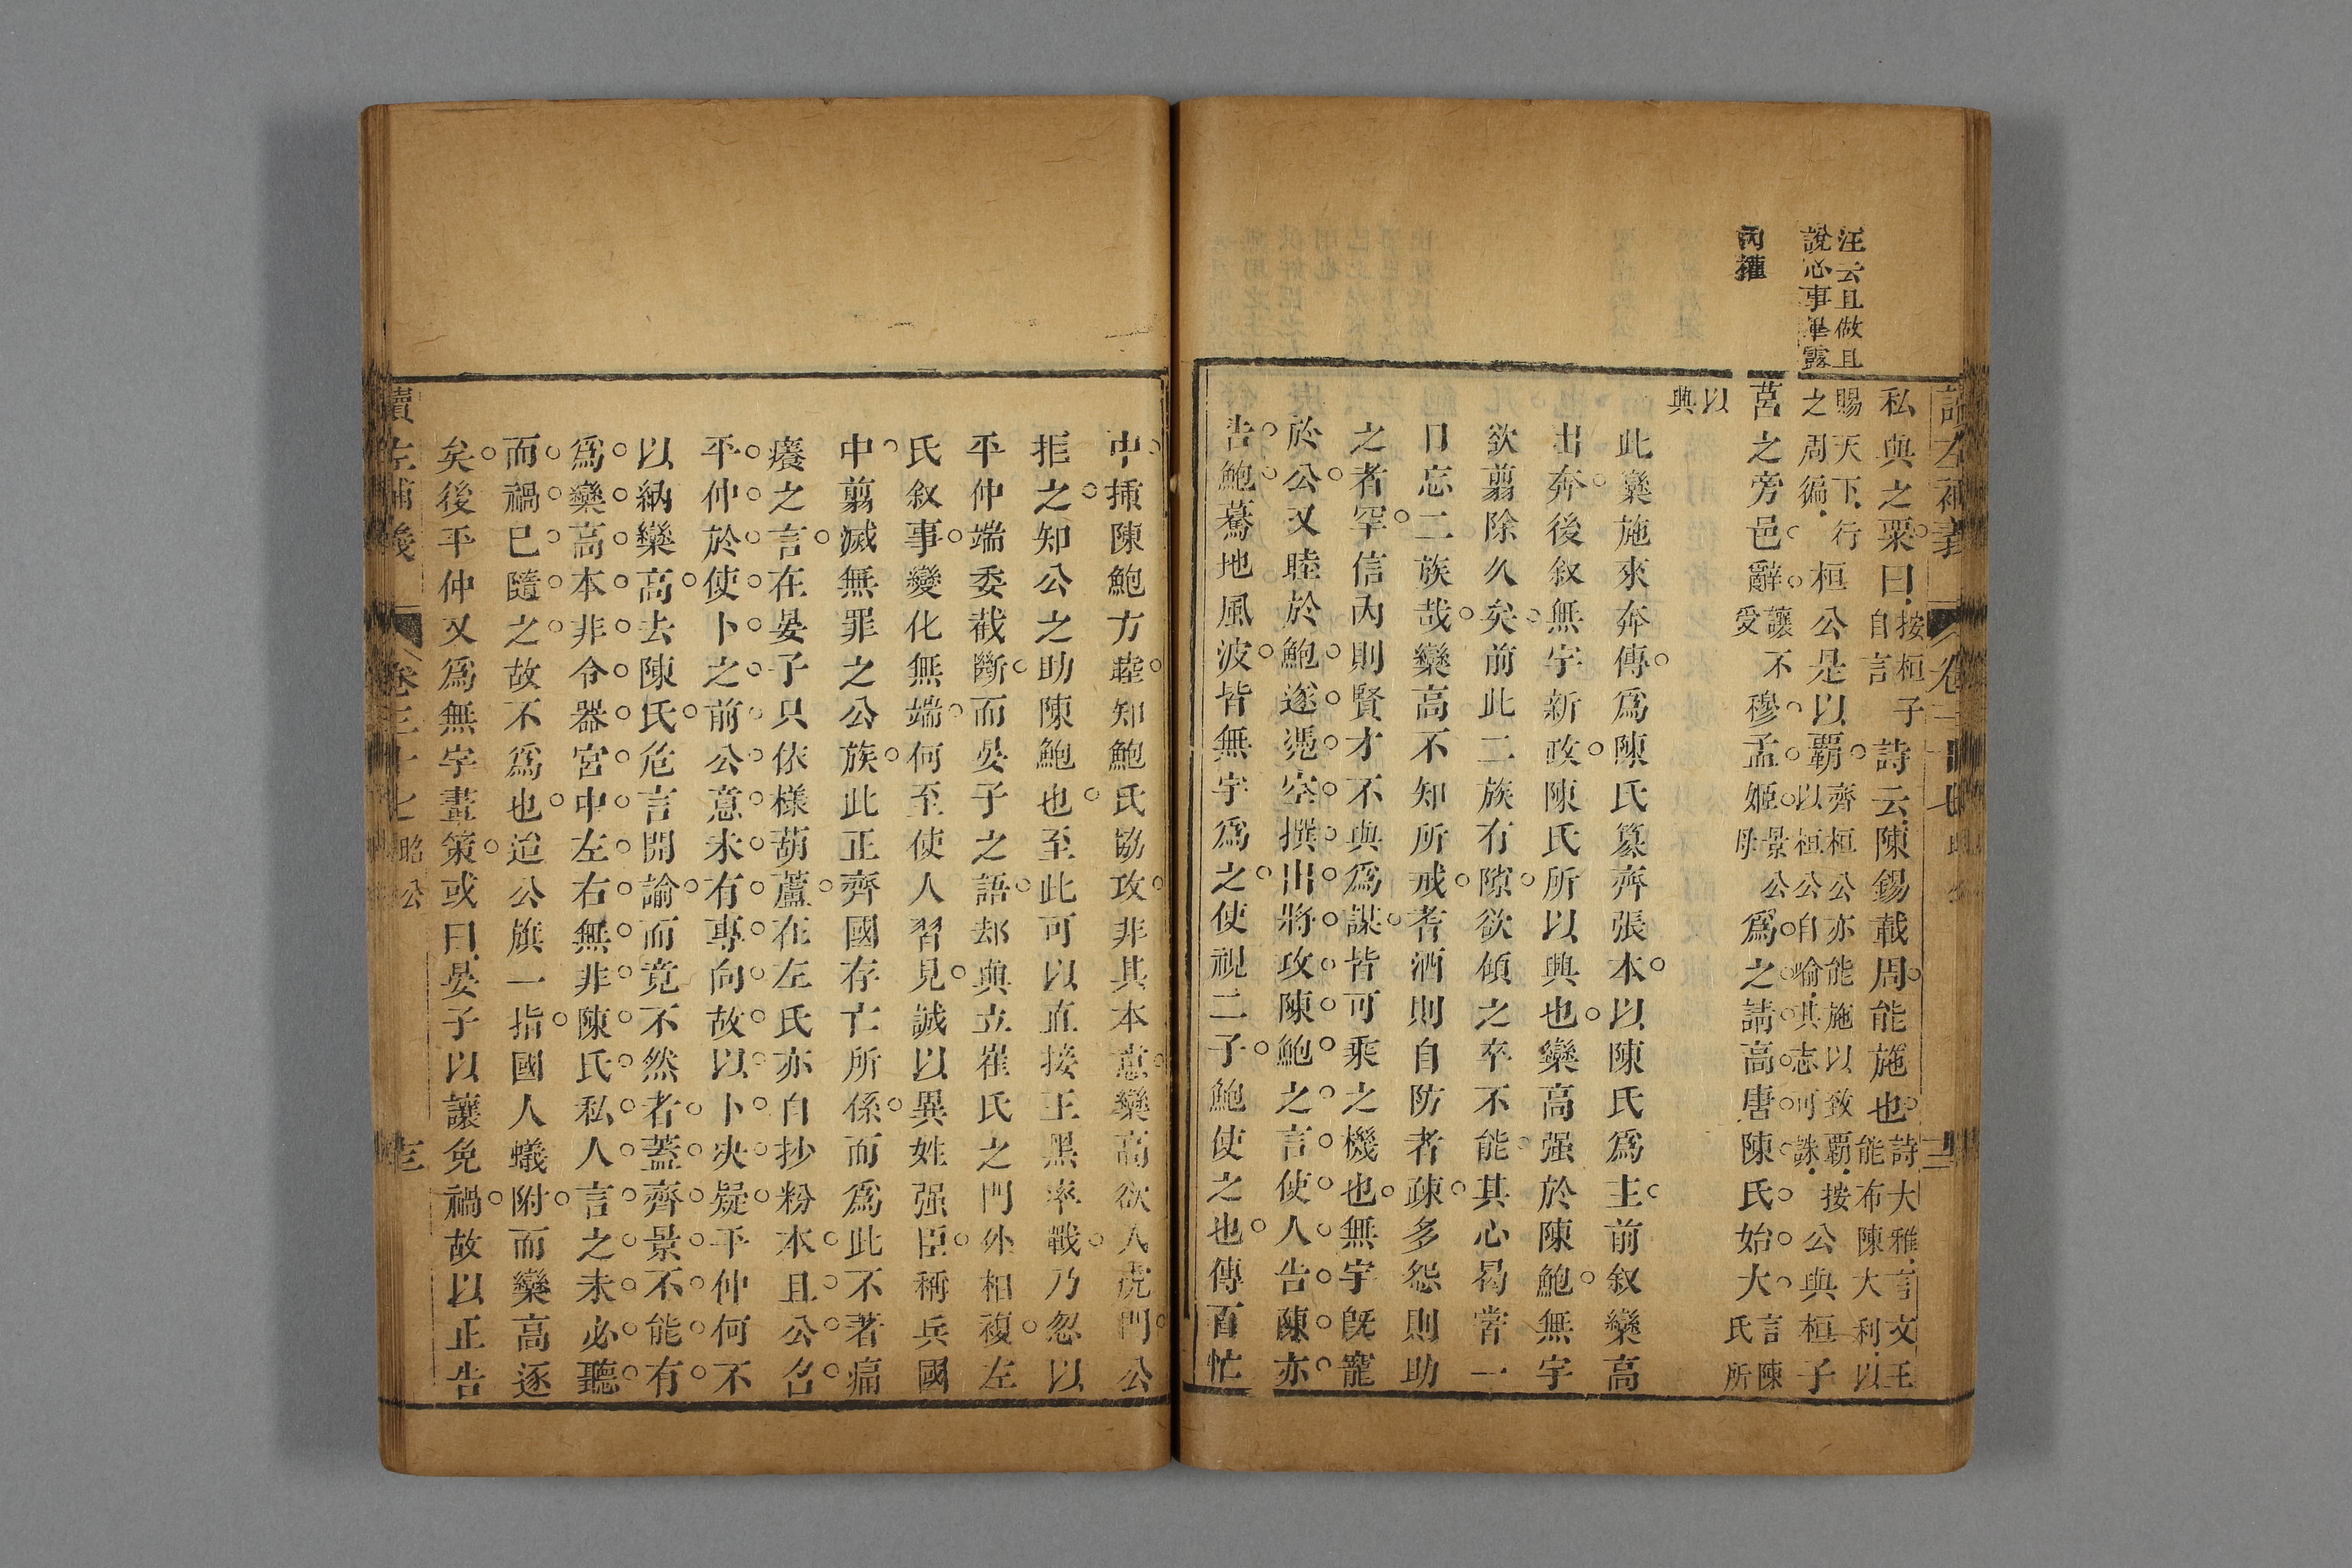 汪云且做且
說心事畢露
內權
私與之粟曰按桓子自言詩云陳錫載周能施也詩大雅言文王能布陳大利以
賜天下行之周徧桓公是以霸齊桓公亦能施以致霸按公與桓子以桓公自喻其志可誅
莒之旁邑辭讓不受穆孟姬景公母爲之請高唐陳氏始大言陳氏所
以興
此欒施來奔傳爲陳氏簒齊張本以陳氏爲主前叙欒高
出奔後叙無宇新政陳氏所以興也欒高强於陳鮑無宇
欲翦除久矣前此二族有隙欲傾之卒不能其心曷嘗一
日忘二族哉欒高不知所戒耆酒則自防者疎多怨則助
之者罕信內則賢才不與爲謀皆可乘之機也無宇旣寵
於公又睦於鮑遂憑空撰出將攻陳鮑之言使人告陳亦
告鮑驀地風波皆無宇爲之使視二子鮑使之也傳百忙
中揷陳鮑方睦知鮑氏協攻非其本意欒高欲入虎門公
拒之知公之助陳鮑也至此可以直接王黑率戰乃忽以
平仲端委截斷而晏子之語却與立崔氏之門外相複左
氏叙事變化無端何至使人習見誠以異姓强臣稱兵國
中翦滅無罪之公族此正齊國存亡所係而爲此不著痛
癢之言在晏子只依樣葫蘆在左氏亦自抄粉本且公召
平仲於使卜之前公意未有專向故以卜决疑平仲何不
以納欒高去陳氏危言開諭而竟不然者蓋齊景不能有
爲欒高本非令器宮中左右無非陳氏私人言之未必聽
而禍已隨之故不爲也迨公旗一指國人蟻附而欒高逐
矣後平仲又爲無宇畫策或曰晏子以讓免禍故以正告
讀左補義 卷三十七 昭公